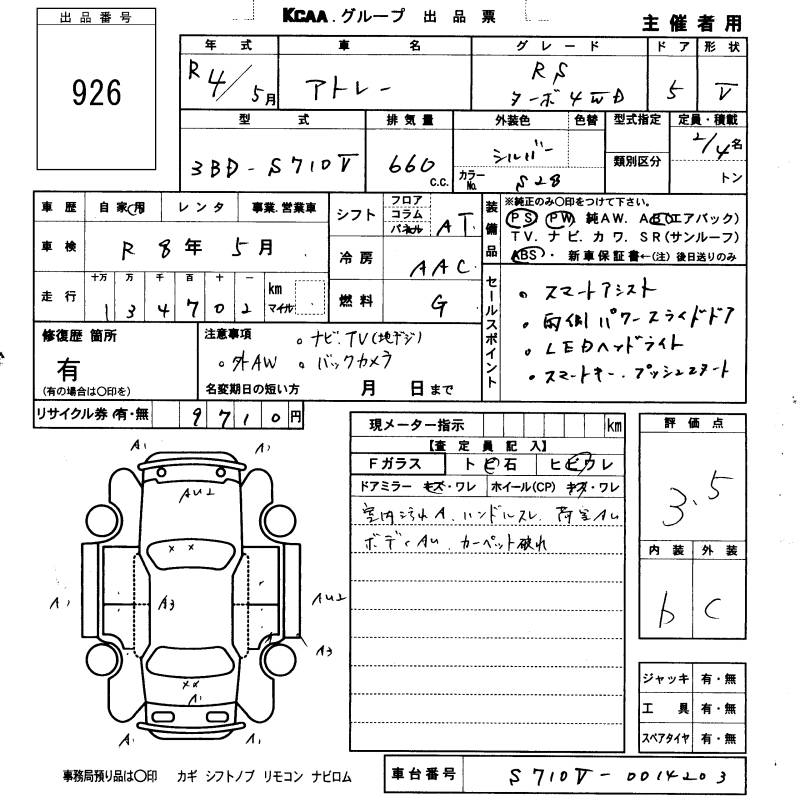 出品番号
926
KCAA.グループ 出品票
主催者用
年式 車名 グレード ドア 形状
R4/5月 アトレー RS ターボ4WD 5 V
型式 排気量 外装色 色替 型式指定 定員・積載
3BD-S710V 660c.c. シルバー 2/4名
カラーNo. S28 類別区分 トン
車歴 自家用 レンタ 事業.営業車
車検 R8年5月
走行 十万 万 千 百 十 一
1 3 4 7 0 2 km マイル
シフト フロア コラム パネル AT
冷房 AAC
燃料 G
装備品 ※純正のみ〇印をつけて下さい。
PS PW 純AW. AB(エアバック)
TV. ナビ. カワ. SR(サンルーフ)
ABS・新車保証書←(注)後日送りのみ
セールスポイント
・スマートアシスト
・両側パワースライドドア
・LEDヘッドライト
・スマートキー.プッシュスタート
修復歴 箇所
有
(有の場合は〇印を)
注意事項 ・ナビ.TV(地デジ)
・外AW ・バックカメラ
名変期日の短い方 月 日まで
リサイクル券 有・無 9710円
現メーター指示 km
【査定員記入】
Fガラス トビ石 ヒビワレ
ドアミラー キズ・ワレ ホイール(CP) キズ・ワレ
室内汚れA. ハンドルスレ. 荷室AU
ボディAU. カーペット破れ
評価点
3.5
内装 外装
b C
ジャッキ 有・無
工具 有・無
スペアタイヤ 有・無
A1 A1
AU2
××
A1 A3 AU2
A
A3
××
A1
A1 A1
事務局預り品は〇印 カギ シフトノブ リモコン ナビロム
車台番号 S710V-0014203